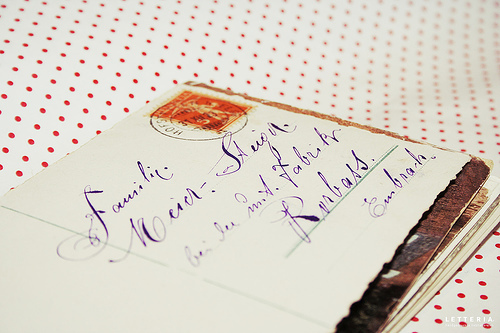 Familie.
Meier-Steiger.
bei der mit. Fabrik
Rorbass.
Embrach.
HOF
LETTERIA